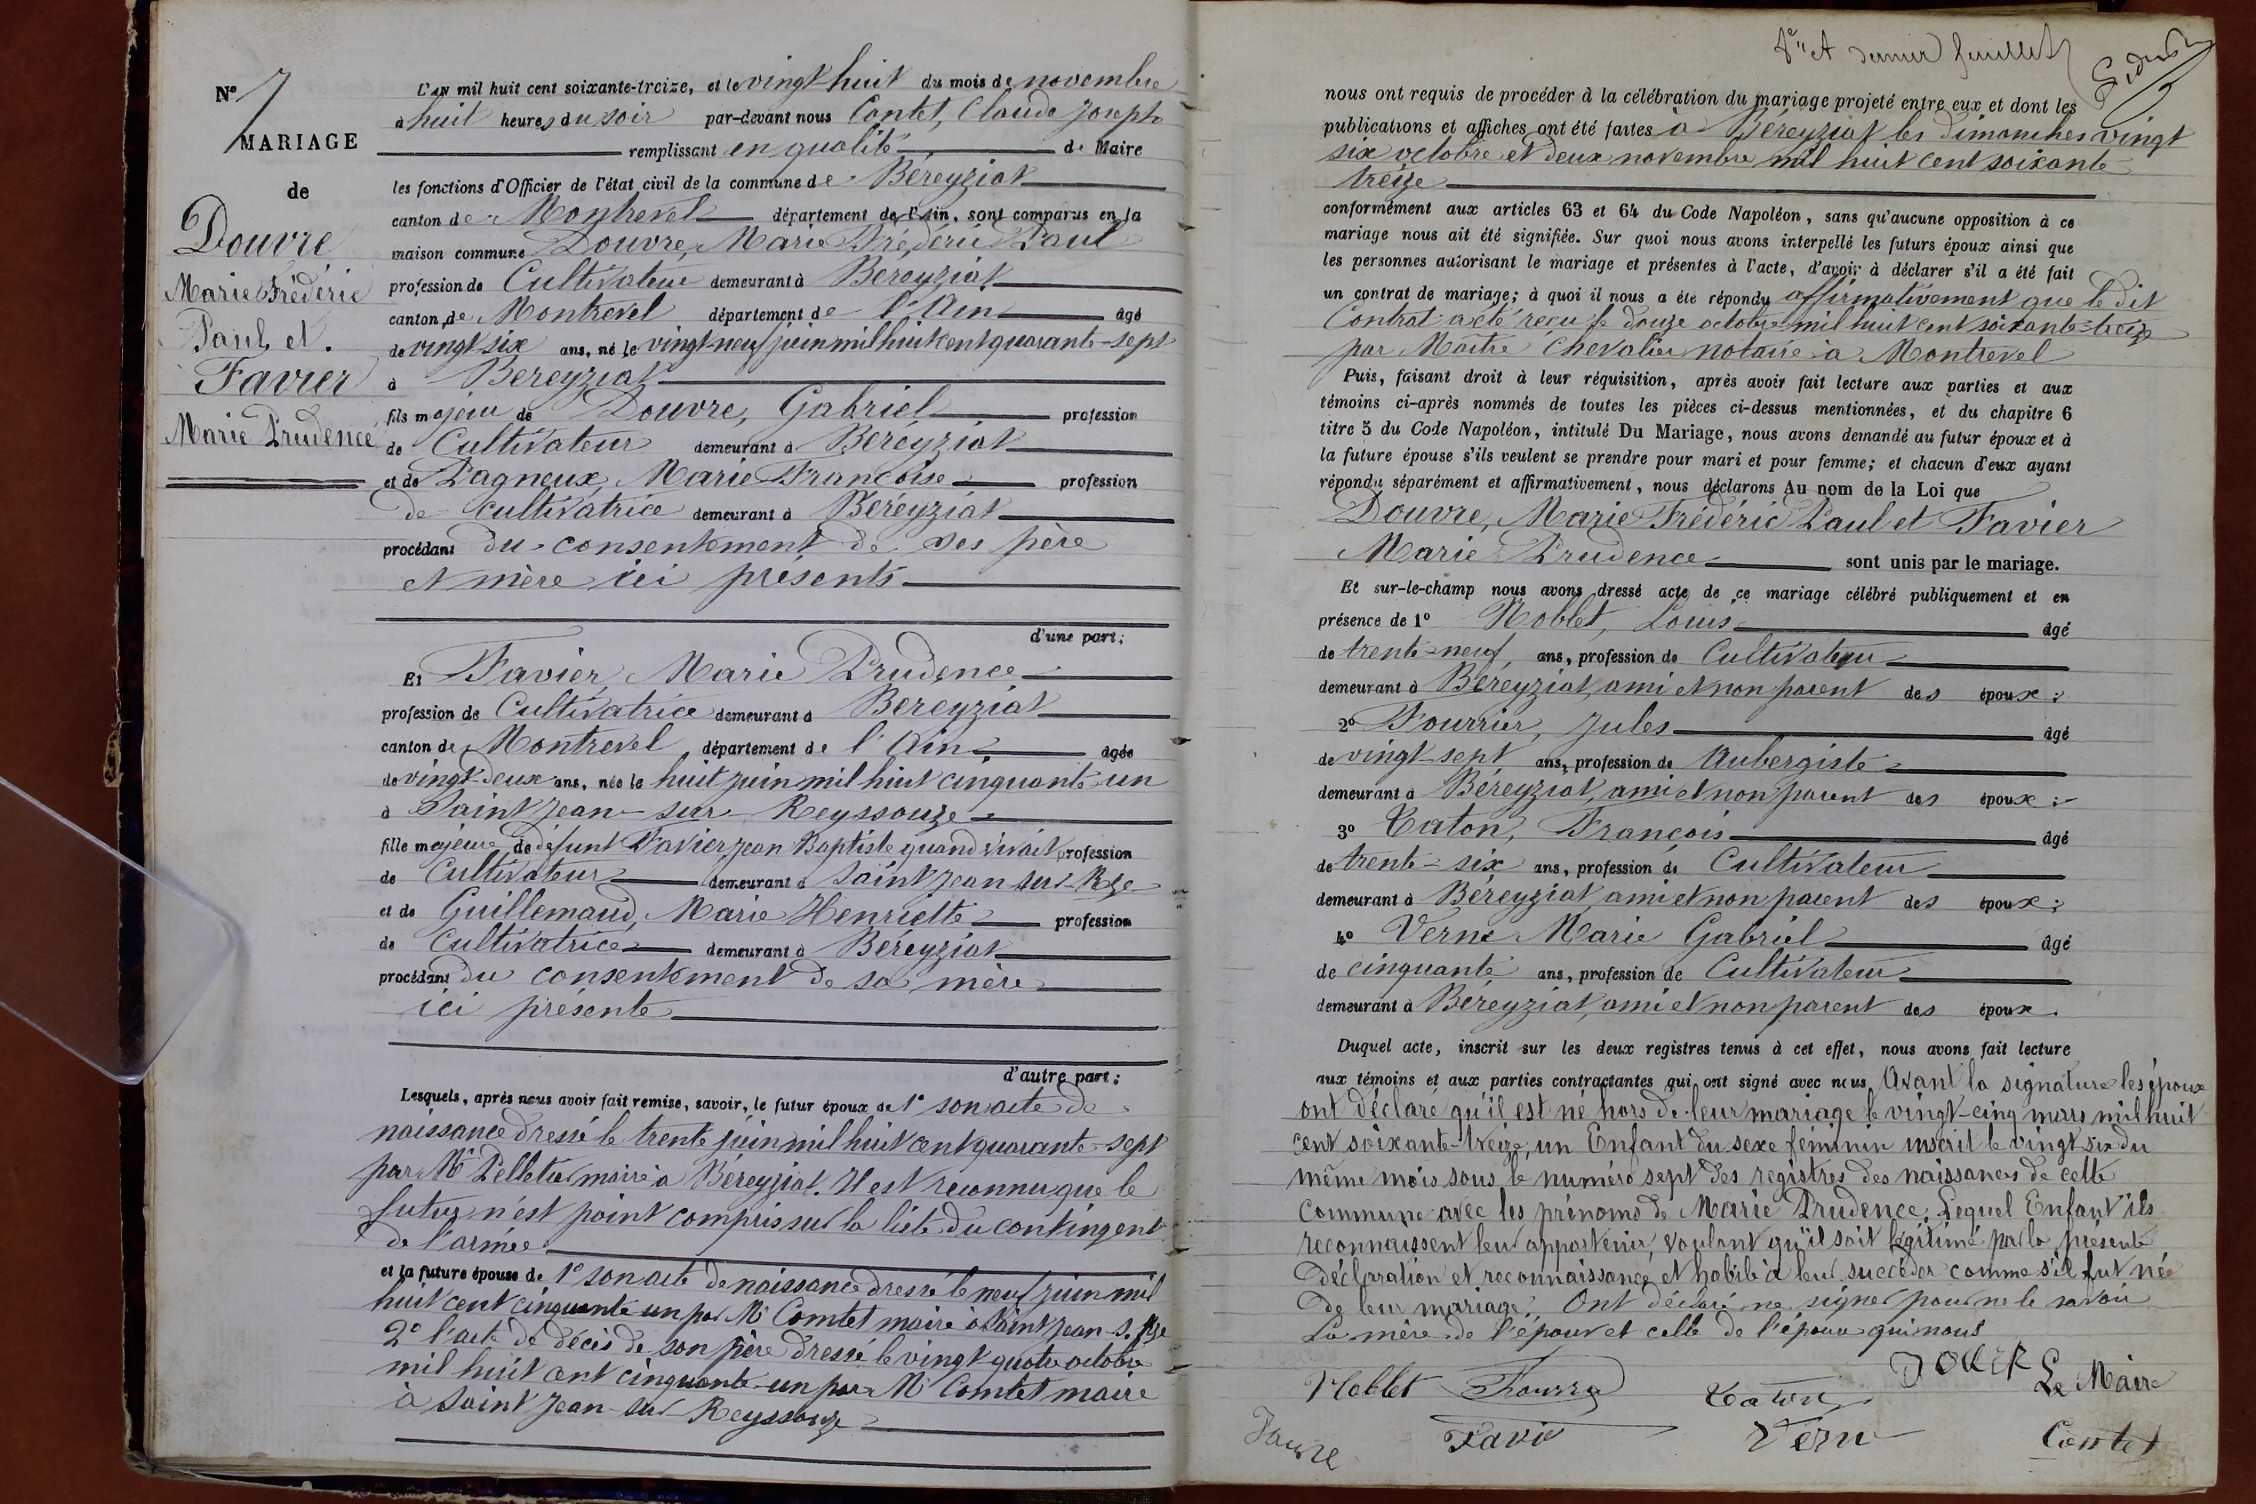 N° 7
MARIAGE
de
Douvre
Marie Frédéric
Paul et
Favier
Marie Prudence
L'an mil huit cent soixante-treize, et le vingt-huit du mois de novembre
à huit heures du soir par-devant nous Contet, Claude Joseph
remplissant en qualité de Maire
les fonctions d'Officier de l'état civil de la commune de Béreyziat
canton de Montrevel département de l'Ain, sont comparus en la
maison commune Douvre, Marie Frédéric Paul
profession de Cultivateur demeurant à Bereyziat
canton de Montrevel département de l'Ain âgé
de vingt six ans, né le vingt-neuf juin mil huit cent quarante-sept
à Bereyziat
fils majeur de Douvre, Gabriel profession
de Cultivateur demeurant à Beréyziat
et de Pagneux, Marie Françoise profession
de cultivatrice demeurant à Beréyziat
procédant du consentement de ses père
et mère ici présents
d'une part;
Et Favier, Marie Prudence
profession de Cultivatrice demeurant à Bereyziat
canton de Montrevel, département de l'Ain âgée
de vingt-deux ans, née le huit juin mil huit cinquante-un
à Saint Jean-sur-Reyssouze
fille majeure de défunt Favier Jean Baptiste quand vivait profession
de Cultivateur demeurant à Saint Jean sur-Rze
et de Guillemaud, Marie Henriette profession
de Cultivatrice demeurant à Beréyziat
procédant du consentement de sa mère
ici présente
d'autre part;
Lesquels, après nous avoir fait remise, savoir, le futur époux de 1° son acte de
naissance dressé le trente juin mil huit cent quarante-sept
par Mr Pelletier maire à Béreyziat. Il est reconnu que le
futur n'est point compris sur la liste du contingent
de l'armée
et la future épouse de 1° son acte de naissance dressé le neuf juin mil
huit cent cinquante un par Mr Comtet maire à Saint Jean-s. Rze
2° l'acte de décès de son père dressé le vingt-quatre octobre
mil huit cent cinquante-un par Mr Comtet maire
à Saint Jean-sur Reyssouze
et dernier feuillet
nous ont requis de procéder à la célébration du mariage projeté entre eux et dont les
publications et affiches ont été faites à Béreyziat les dimanches vingt
six octobre et deux novembre mil huit cent soixante-
treize
conformément aux articles 63 et 64 du Code Napoléon, sans qu'aucune opposition à ce
mariage nous ait été signifiée. Sur quoi nous avons interpellé les futurs époux ainsi que
les personnes autorisant le mariage et présentes à l'acte, d'avoir à déclarer s'il a été fait
un contrat de mariage; à quoi il nous a été répondu affirmativement que le dit
Contrat a été reçu le douze octobre mil huit cent soixante-treize
par Maitre Chevalier notaire à Montrevel
Puis, faisant droit à leur réquisition, après avoir fait lecture aux parties et aux
témoins ci-après nommés de toutes les pièces ci-dessus mentionnées, et du chapitre 6
titre 5 du Code Napoléon, intitulé Du Mariage, nous avons demandé au futur époux et à
la future épouse s'ils veulent se prendre pour mari et pour femme; et chacun d'eux ayant
répondu séparément et affirmativement, nous déclarons Au nom de la Loi que
Douvre, Marie Frédéric Paul et Favier
Marie Prudence sont unis par le mariage.
Et sur-le-champ nous avons dressé acte de ce mariage célébré publiquement et en
présence de 1° Noblet, Louis âgé
de trente-neuf ans, profession de Cultivateur
demeurant à Béreyziat, ami et non parent des époux;
2° Fourrier, Jules âgé
de vingt-sept ans, profession de Aubergiste
demeurant à Béreyziat, ami et non parent des époux;
3° Caton, François âgé
de trente-six ans, profession de Cultivateur
demeurant à Béreyziat ami et non parent des époux;
4° Verne Marie Gabriel âgé
de cinquante ans, profession de Cultivateur
demeurant à Béreyziat, ami et non parent des époux.
Duquel acte, inscrit sur les deux registres tenus à cet effet, nous avons fait lecture
aux témoins et aux parties contractantes qui ont signé avec nous. Avant la signature les époux
ont déclaré qu'il est né hors de leur mariage le vingt-cinq mars mil huit
cent soixante-treize, un Enfant du sexe féminin inscrit le vingt-six du
même mois sous le numéro sept des registres des naissances de cette
Commune avec les prénoms de Marie Prudence. Lequel Enfant ils
reconnaissent leur appartenir, voulant qu'il soit légitimé par la présente
déclaration et reconnaissance et habile à leur succéder comme s'il fut né
de leur mariage. Ont déclaré ne signer pour ne le savoir
La mère de l'époux et celle de l'épouse qui nous
Noblet Caton Le Maire
Verne Contet